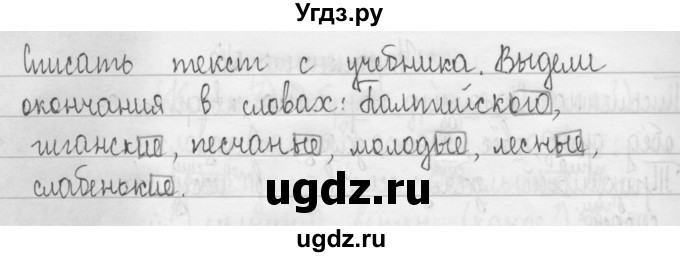 Угдз.ру
Списать текст с учебника. Выдели
окончания в словах: Балтийского,
гигантские, песчаные, молодые, лесные,
слабенькие.
ugdz.ru
ugdz.ru